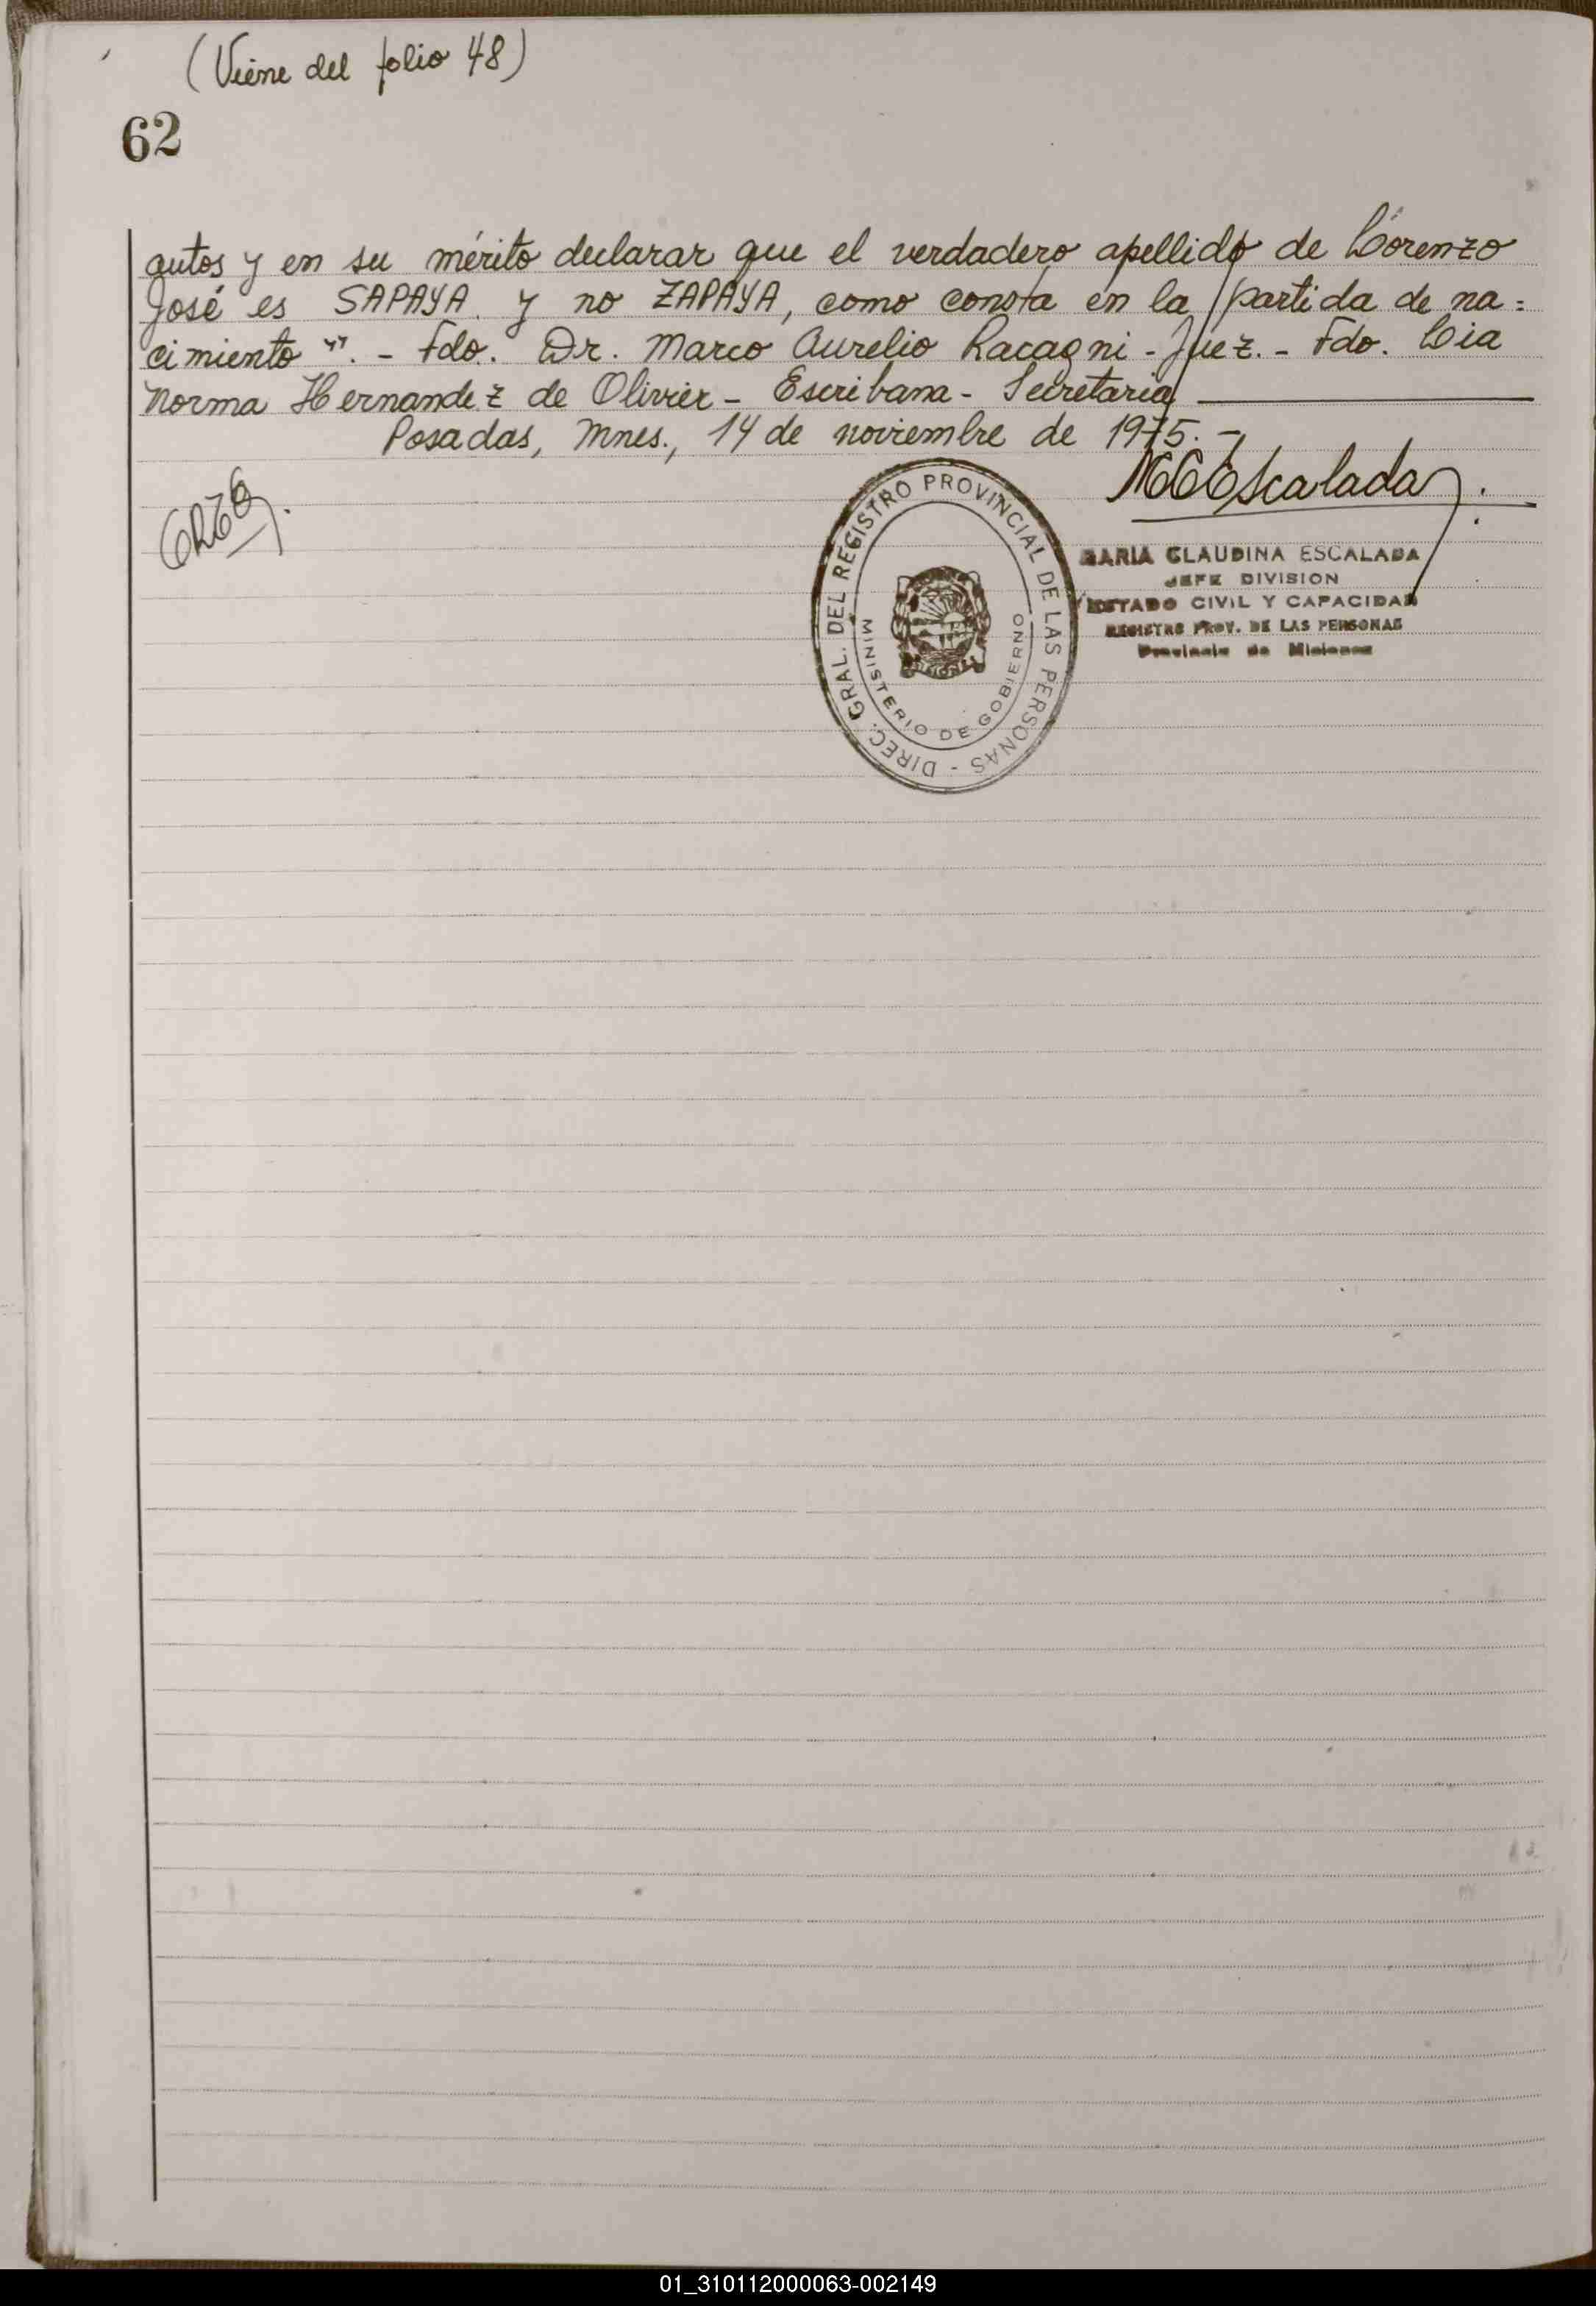 (Viene del folio 48)
62
autos y en su mérito declarar que el verdadero apellido de Lorenzo
José es SAPAYA y no ZAPAYA, como consta en la partida de na=
cimiento". - Fdo. Dr. Marco Aurelio Racagni - Juez. - Fdo. Lia
Norma Hernandez de Olivier - Escribana - Secretaria
Posadas, Mnes., 14 de noviembre de 1975. -
MCEscalada
DIREC. GRAL. DEL REGISTRO PROVINCIAL DE LAS PERSONAS -
MINISTERIO DE GOBIERNO
MISIONES
MARIA CLAUDINA ESCALADA
JEFE DIVISION
ESTADO CIVIL Y CAPACIDAD
REGISTRO PROV. DE LAS PERSONAS
Provincia de Misiones
01_310112000063-002149